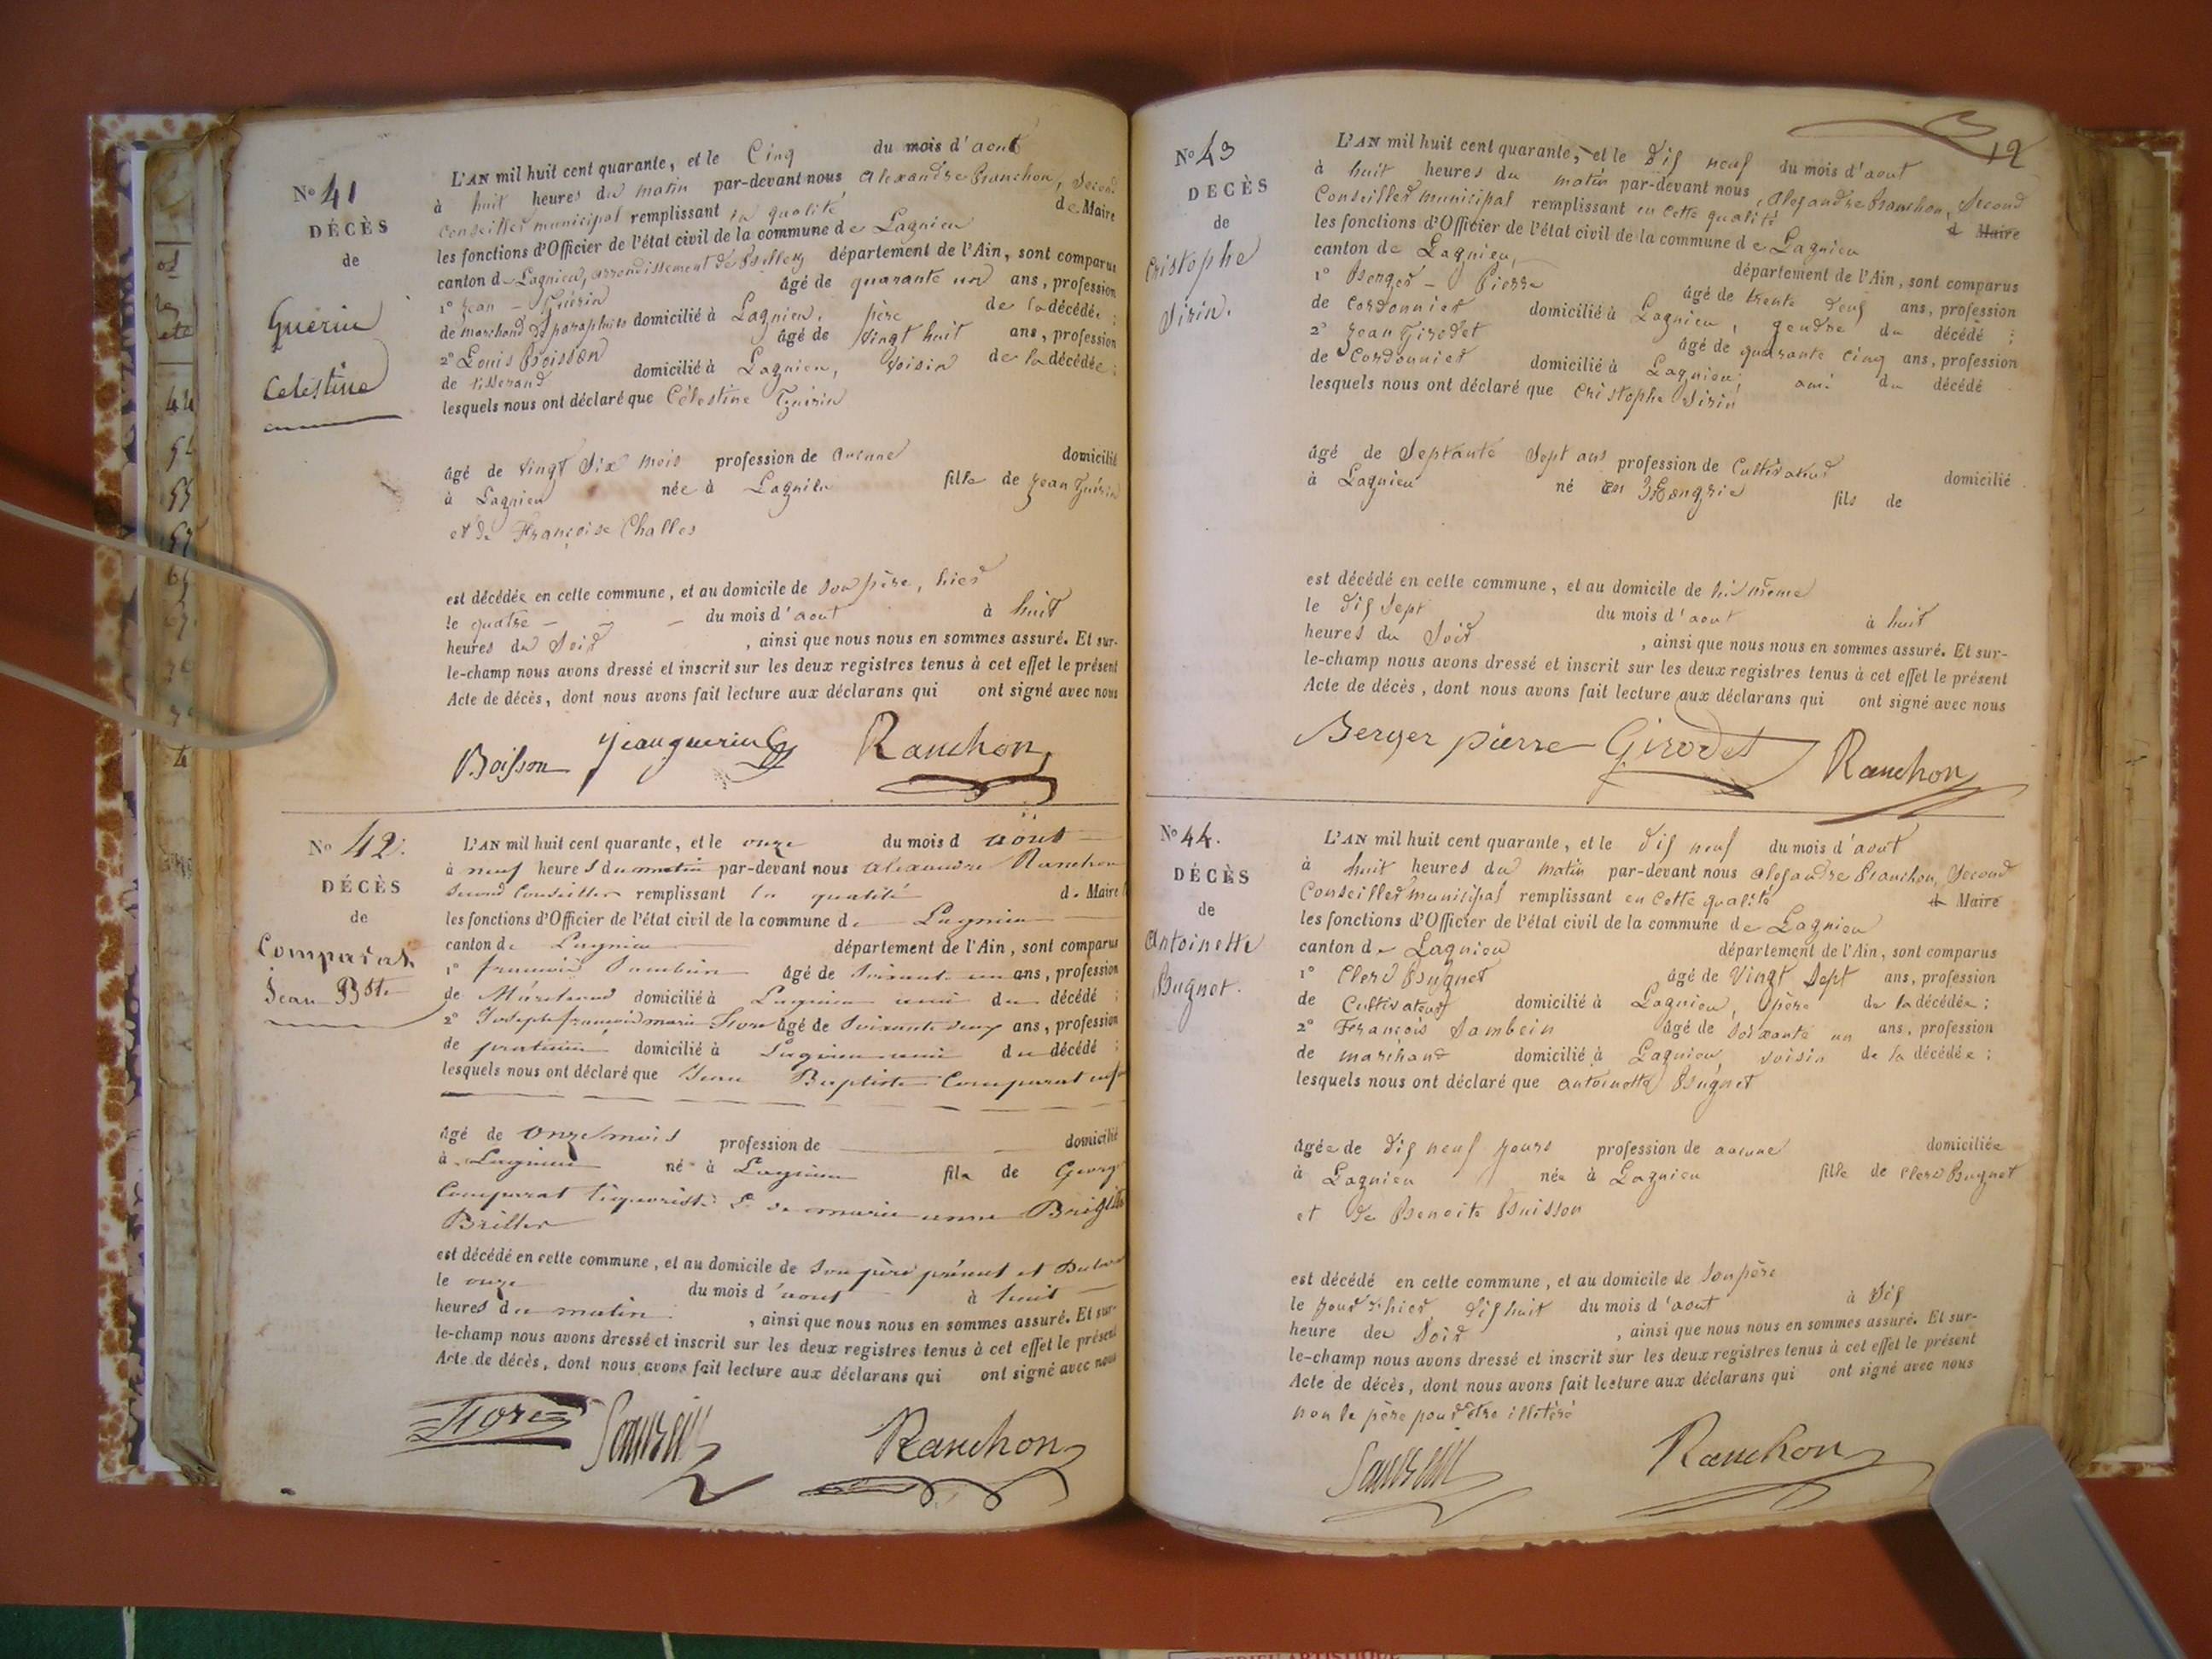 N° 41
DÉCÈS
de
Guerin
Celestine
L'AN mil huit cent quarante, et le Cinq du mois d'aout
à huit heures du matin par-devant nous Alexandre Ranchon, Second
Conseiller municipal remplissant en qualité de Maire
les fonctions d'Officier de l'état civil de la commune de Lagnieu
canton de Lagnieu, arrondissement de Belley département de l'Ain, sont comparus
1° Jean - Guérin âgé de quarante un ans, profession
de marchand de parapluies domicilié à Lagnieu, père de la décédée ;
2° Louis Boisson âgé de Vingt huit ans, profession
de tisserand domicilié à Lagnieu, Voisin de la décédée ;
lesquels nous ont déclaré que Célestine Guérin
âgé de vingt Six mois profession de aucune domicilié
à Lagnieu née à Lagnieu fille de Jean Guérin
et de Françoise Challes
est décédée en celle commune, et au domicile de Son père, hier
le quatre - - - du mois d'aout à huit
heures du Soir , ainsi que nous nous en sommes assuré. Et sur-
le-champ nous avons dressé et inscrit sur les deux registres tenus à cet effet le présent
Acte de décès, dont nous avons fait lecture aux déclarans qui ont signé avec nous
Boisson Jean guerin Ranchon
N° 42.
DÉCÈS
de
Comparat
Jean Bste
L'AN mil huit cent quarante, et le onze du mois d août
à neuf heures du matin par-devant nous alexandre Ranchon
Second Conseiller remplissant la qualité de Maire
les fonctions d'Officier de l'état civil de la commune de Lagnieu
canton de Lagnieu département de l'Ain, sont comparus
1° françois Sambein âgé de Soixante un ans, profession
de Marchand domicilié à Lagnieu ami du décédé ;
2° Joseph françois marie âgé de Soixante deux ans, profession
de praticien domicilié à Lagnieu ami du décédé ;
lesquels nous ont déclaré que Jean Baptiste Comparat
âgé de onze mois profession de domicilié
à Lagnieu né à Lagnieu fils de George
Comparat liquoriste & de marie anne Brigitte
Briller
est décédé en celle commune, et au domicile de Son père et
le onze du mois d'aout à huit
heures du matin , ainsi que nous nous en sommes assuré. Et sur-
le-champ nous avons dressé et inscrit sur les deux registres tenus à cet effet le présent
Acte de décès, dont nous avons fait lecture aux déclarans qui ont signé avec nous
Sambein Ranchon
12
N° 43
DECÈS
de
Cristophe
Sirin.
L'AN mil huit cent quarante, et le dix neuf du mois d'aout
à huit heures du matin par-devant nous, Alexandre Ranchon, Second
Conseiller municipal remplissant en cette qualité d Maire
les fonctions d'Officier de l'état civil de la commune de Lagnieu
canton de Lagnieu, département de l'Ain, sont comparus
1° Berger - Pierre âgé de trente deux ans, profession
de Cordonnier domicilié à Lagnieu, gendre du décédé ;
2° Jean Girodet âgé de quarante cinq ans, profession
de Cordonnier domicilié à Lagnieu, ami du décédé
lesquels nous ont déclaré que Cristophe Sirin
âgé de Septante Sept ans profession de Cultivateur domicilié
à Lagnieu né en Hongrie fils de
est décédé en celle commune, et au domicile de lui même
le dix Sept du mois d'aout à huit
heures du Soir , ainsi que nous nous en sommes assuré. Et sur-
le-champ nous avons dressé et inscrit sur les deux registres tenus à cet effet le présent
Acte de décès, dont nous avons fait lecture aux déclarans qui ont signé avec nous
Berger pierre Girodet Ranchon
N° 44.
DÉCÈS
de
Antoinette
Bugnet.
L'AN mil huit cent quarante, et le dix neuf du mois d'aout
à huit heures du matin par-devant nous Alexandre Ranchon, Second
Conseiller municipal remplissant en cette qualité d Maire
les fonctions d'Officier de l'état civil de la commune de Lagnieu
canton de Lagnieu département de l'Ain, sont comparus
1° Clerc Bugnet âgé de Vingt Sept ans, profession
de Cultivateur domicilié à Lagnieu, père de la décédée ;
2° François Sambein âgé de soixante un ans, profession
de marchand domicilié à Lagnieu, voisin de la décédée ;
lesquels nous ont déclaré que antoinette Bugnet
âgée de dix neuf jours profession de aucune domiciliée
à Lagnieu née à Lagnieu fille de Clerc Bugnet
et de Benoite Buisson
est décédé en celle commune, et au domicile de Son père
le jour d'hier, dix huit du mois d'aout à dix
heure deu Soir , ainsi que nous nous en sommes assuré. Et sur-
le-champ nous avons dressé et inscrit sur les deux registres tenus à cet effet le présent
Acte de décès, dont nous avons fait lecture aux déclarans qui ont signé avec nous
non le père pour être illétéré
Sambein Ranchon